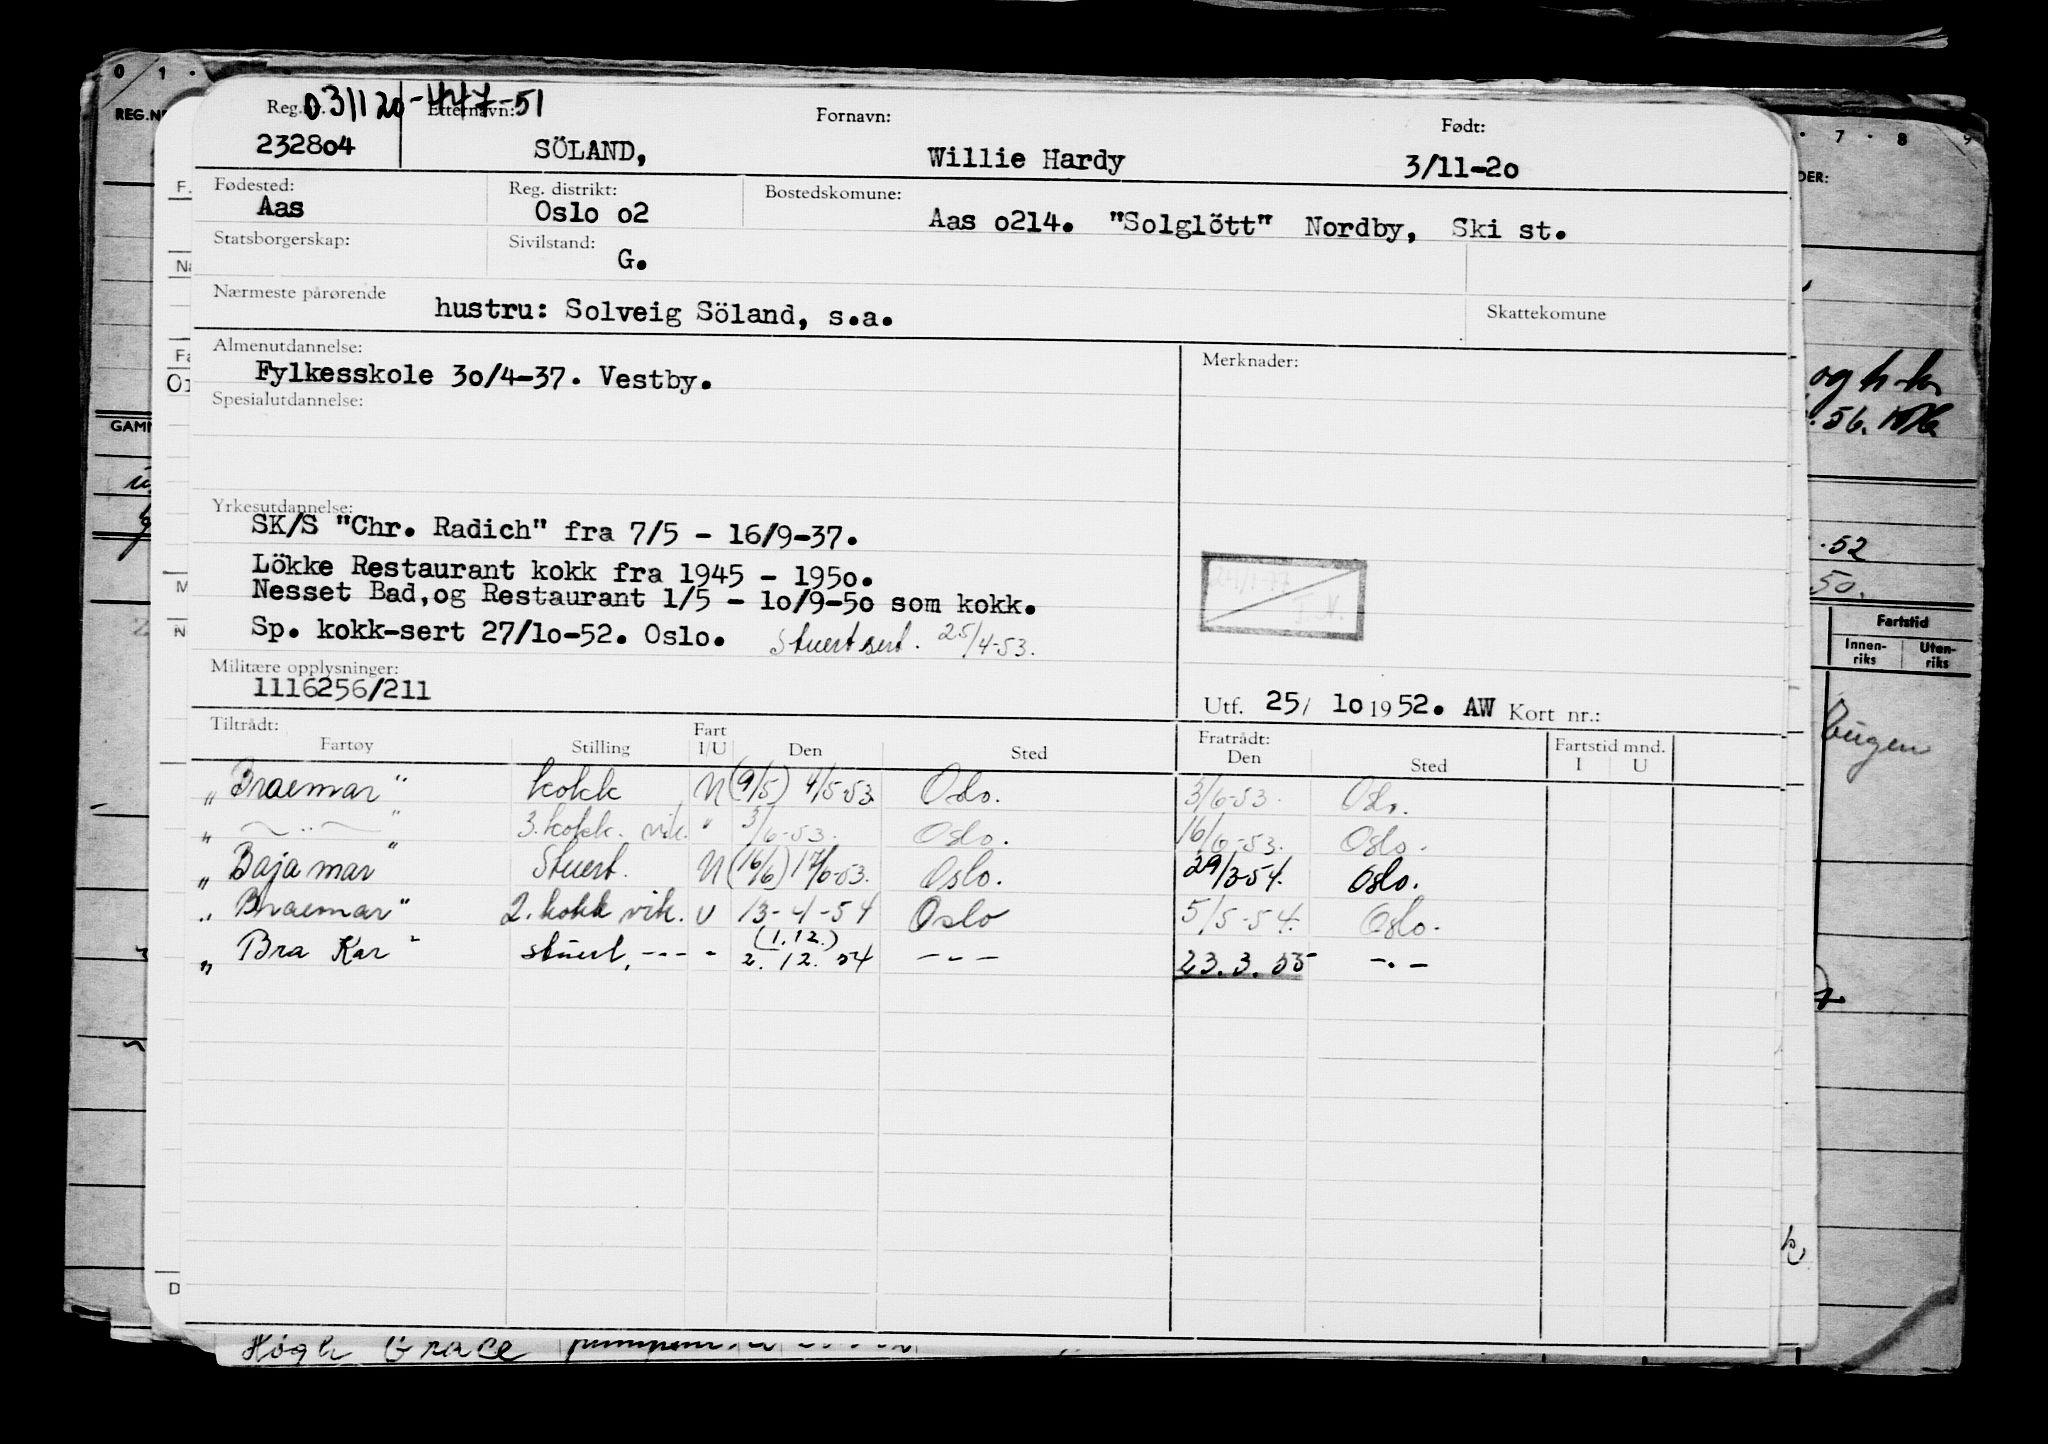 0 1 .
REG.NR
031120-447-51
Reg.nr. Etternavn: Fornavn: Født:
232804 SÖLAND, Willie Hardy 3/11-20
Fødested: Reg. distrikt: Bostedskomune:
Aas Oslo o2 Aas o214. "Solglött" Nordby, Ski st.
Statsborgerskap: Sivilstand:
G.
Nærmeste pårørende Skattekomune
hustru: Solveig Söland, s.a.
Almenutdannelse: Merknader:
Fylkesskole 3o/4-37. Vestby.
Spesialutdannelse:
Yrkesutdannelse:
SK/S "Chr. Radich" fra 7/5 - 16/9-37.
Lökke Restaurant kokk fra 1945 - 195o.
Nesset Bad,og Restaurant 1/5 - 1o/9-5o som kokk.
Sp. kokk-sert 27/1o-52. Oslo. Stuertsert. 25/4-53.
Militære opplysninger:
1116256/211
Utf. 25/ 1o 1952. AW Kort nr.:
Tiltrådt: Fratrådt: Fartstid mnd.
Fartøy Stilling Fart I/U Den Sted Den Sted I U
„ Braemar " kokk U (9/5) 4/5-53 Oslo. 3/6-53. Oslo.
„ — " — " 3. kokk. vik. " 3/6-53. Oslo. 16/6-53. Oslo.
„ Bajamar " Stuert. U (16/6) 17/6-53. Oslo. 29/3-54. Oslo.
„ Braemar " 2. kokk vik. U 13-4-54 Oslo 5/5-54. Oslo.
„ Bra Kar " stuert, --- - (1.12.) 2.12.54 --- 23.3.55 -.-
Høgh Grace
. 7 . 8 9
DER:
og h-k
.56.
.52
50.
Fartstid
Innen-riks Uten-riks
Eugen